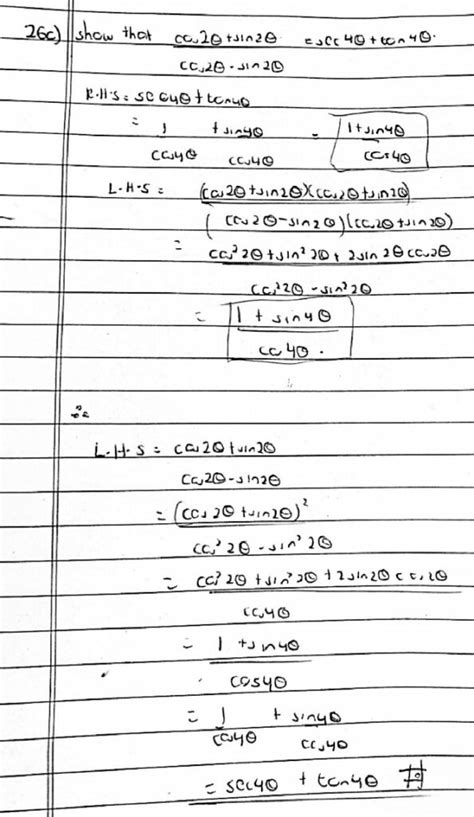 26c) show that cos2θ+sin2θ = sec4θ+tan4θ.
cos2θ-sin2θ
R.H.S = sec4θ+tan4θ
= 1 + sin4θ = 1+sin4θ
cos4θ cos4θ cos4θ
L.H.S = (cos2θ+sin2θ)(cos2θ+sin2θ)
(cos2θ-sin2θ)(cos2θ+sin2θ)
= cos²2θ+sin²2θ+2sin2θcos2θ
cos²2θ-sin²2θ
= 1 + sin4θ
cos4θ.
L.H.S = cos2θ+sin2θ
cos2θ-sin2θ
= (cos2θ+sin2θ)²
cos²2θ-sin²2θ
= cos²2θ+sin²2θ+2sin2θcos2θ
cos4θ
= 1+sin4θ
cos4θ
= 1 + sin4θ
cos4θ cos4θ
= sec4θ + tan4θ #